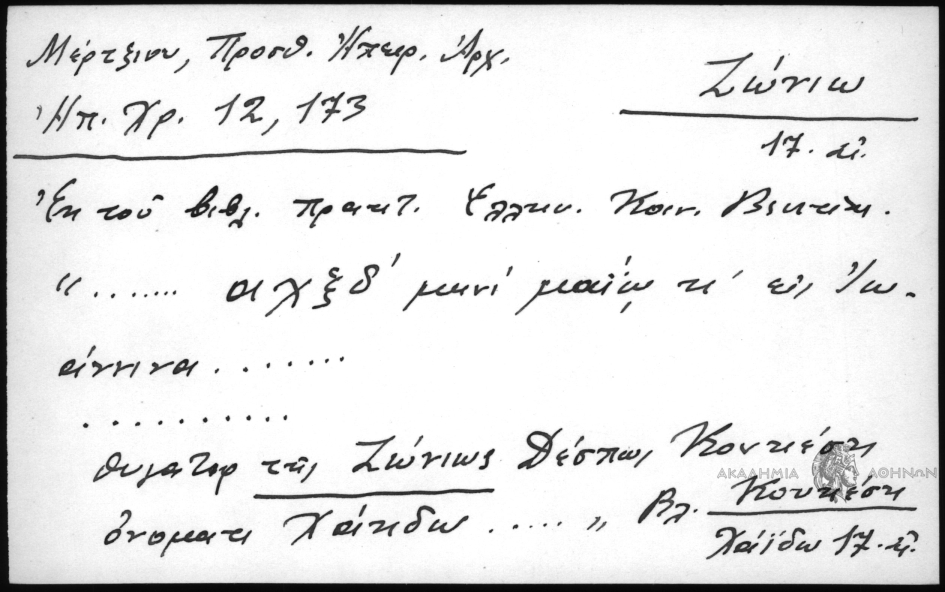 Μέρτζιου, Προσθ. Ἠπειρ. Ἀρχ.
Ἠπ. Χρ. 12, 173
Ζιώνιω
17. αἰ.
Ἐκ τοῦ βιβλ. πρακτ. Ἑλλην. Κοιν. Βενετίας.
"....... αχξδ' μηνί μαΐῳ τ' εἰς Ἰω-
άννινα .......
..........
θυγατερ τῆς Ζιώνιως Δέσπως Κουτιέση
ὀνοματι Χάιδω ..... " Βλ. Κουτιέση
Χάϊδω 17. αἰ.
ΑΚΑΔΗΜΙΑ ΑΘΗΝΩΝ